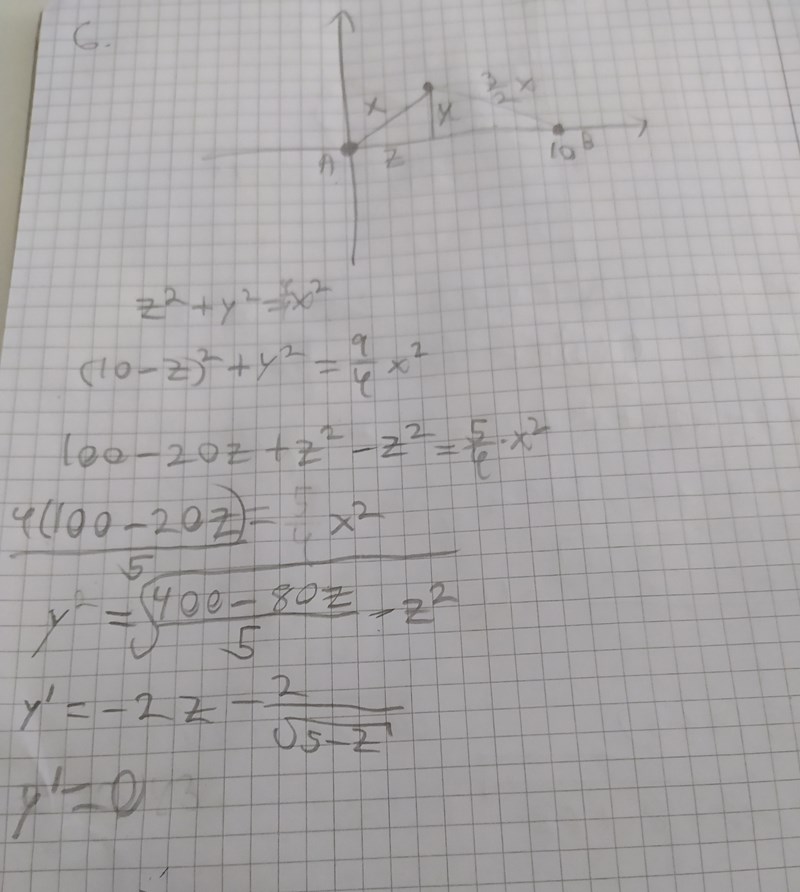 6.
x
y
3/2 x
A
z
10 B
z² + y² = x²
(10 - z)² + y² = 9/4 x²
100 - 20z + z² - z² = 5/4 · x²
4(100 - 20z)/5 = x²
y² = √((400 - 80z)/5 - z²)
y' = -2z - 2/√(5-z)
y' = 0